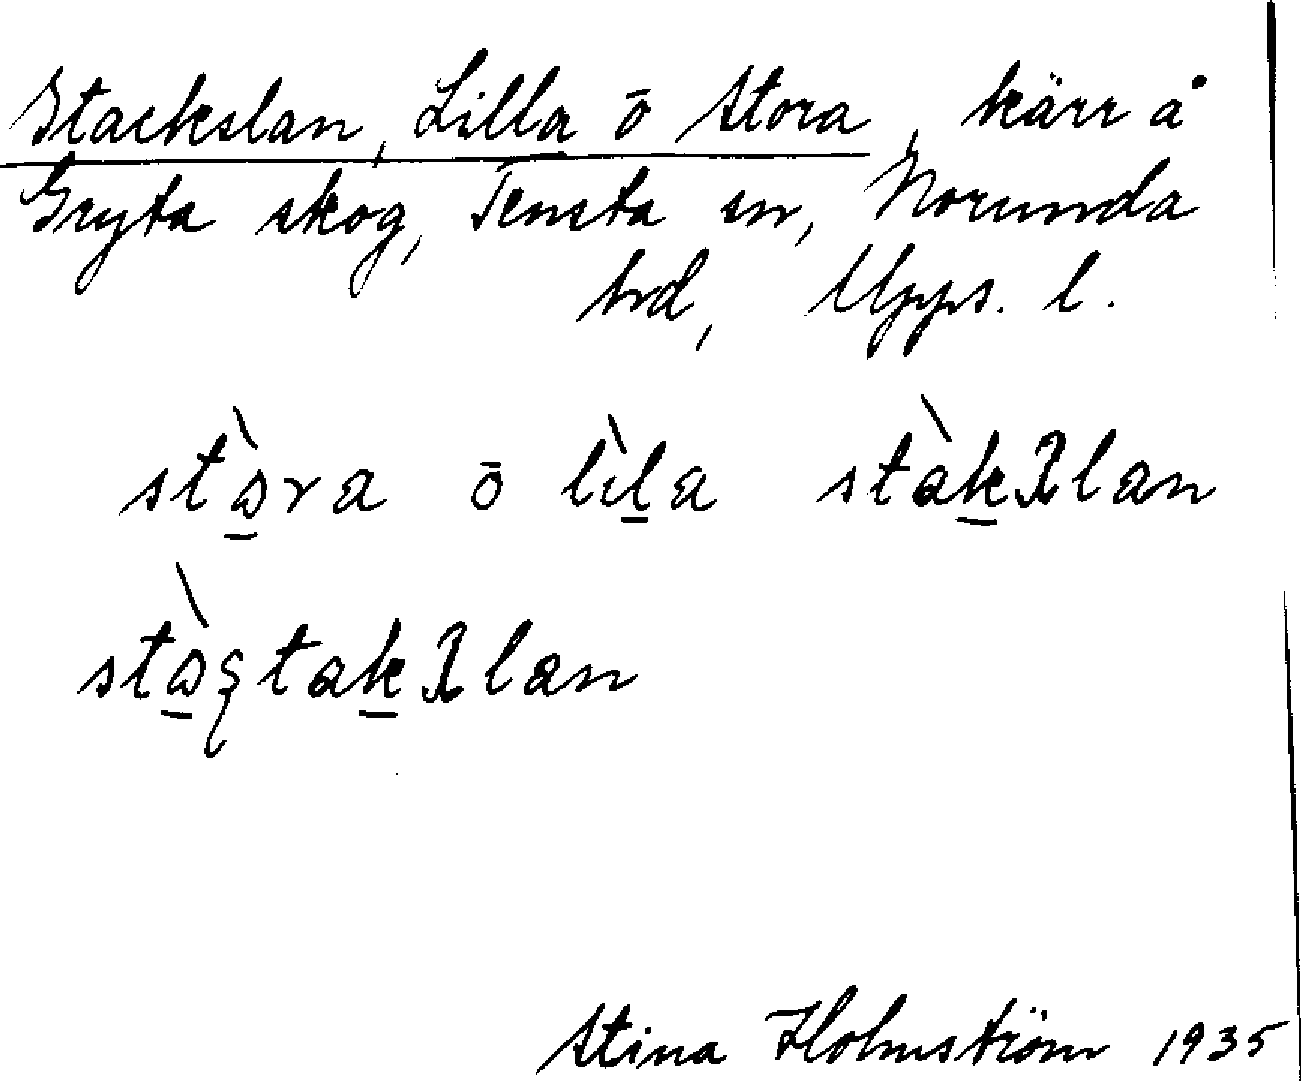 Stackslan, Lilla ō Stora, kärr å
Gryta skog, Tensta sn, Norunda
hrd, Upps. l.
stɷ̀ra ō lìla stàkʎlan
stɷ̀ȿtakʎlan
Stina Holmström 1935